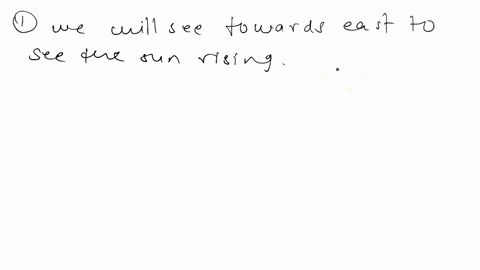 ① we will see towards east to
see the sun rising.